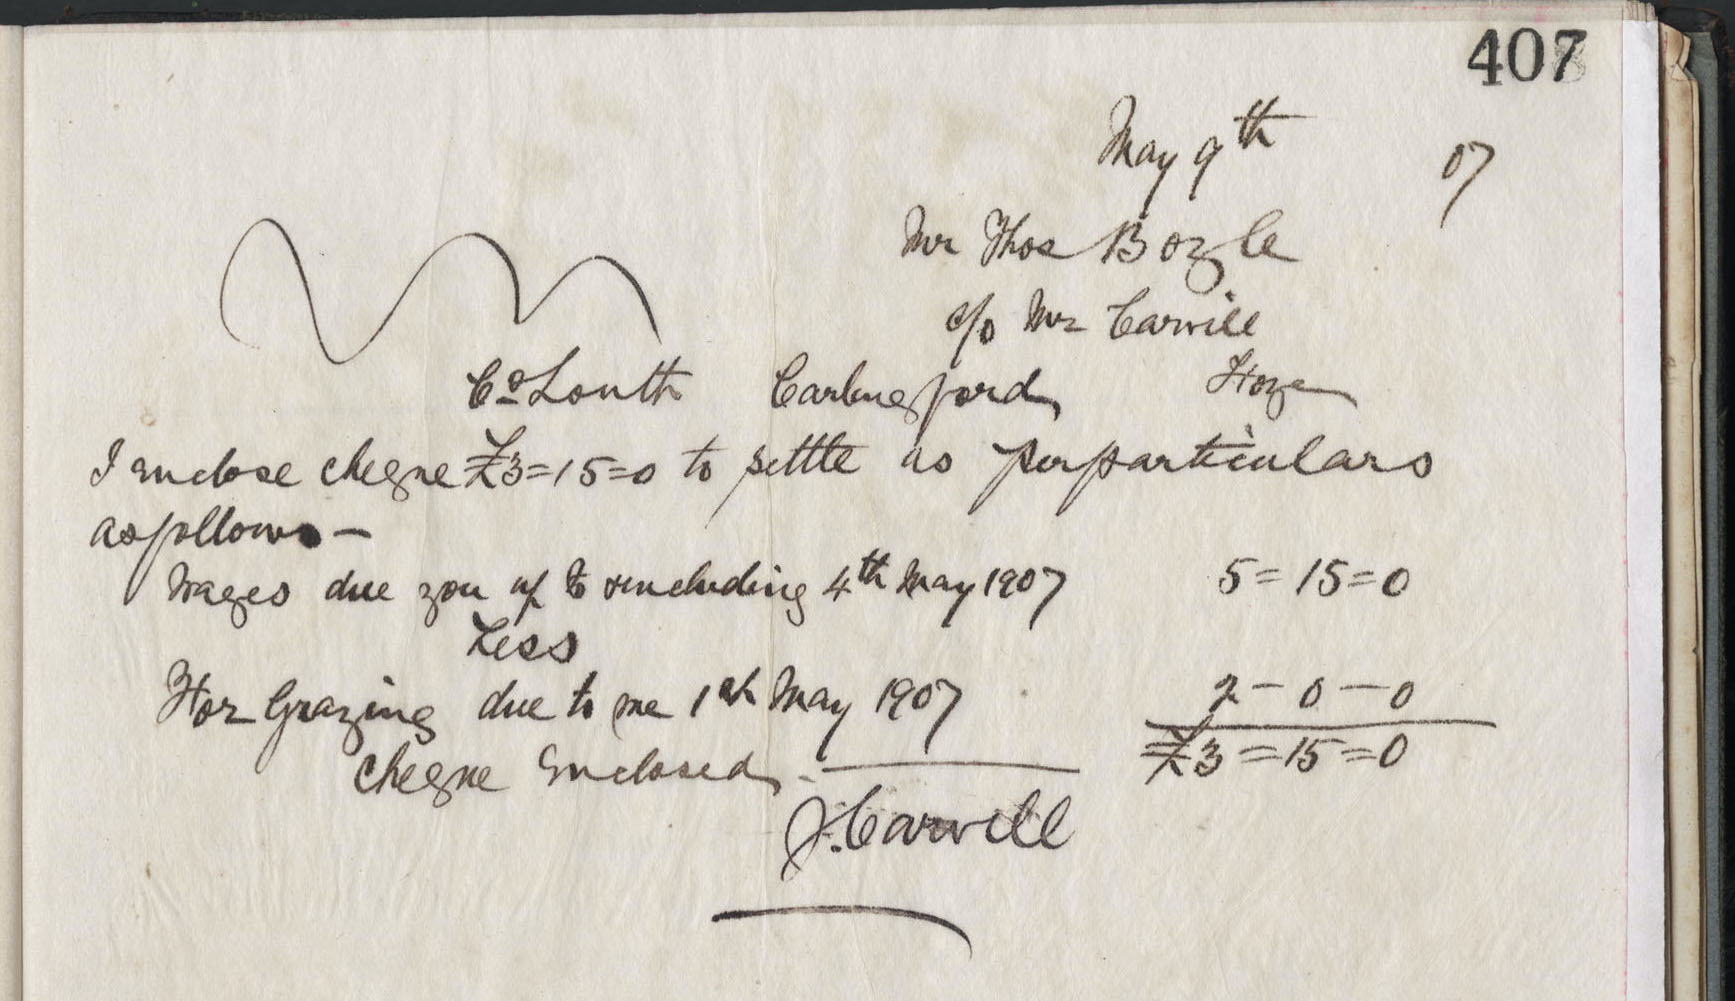 407
May 9th 07
Mr Thos Boyle
c/o Mr Carvill
Co Louth Carlingford
I enclose cheque £3=15=0 to settle as per particulars
as follows —
Wages due you up to & including 4th May 1907 5=15=0
Less
For Grazing due to me 1st May 1907 2-0-0
Cheque Enclosed £3=15=0
J. Carvill